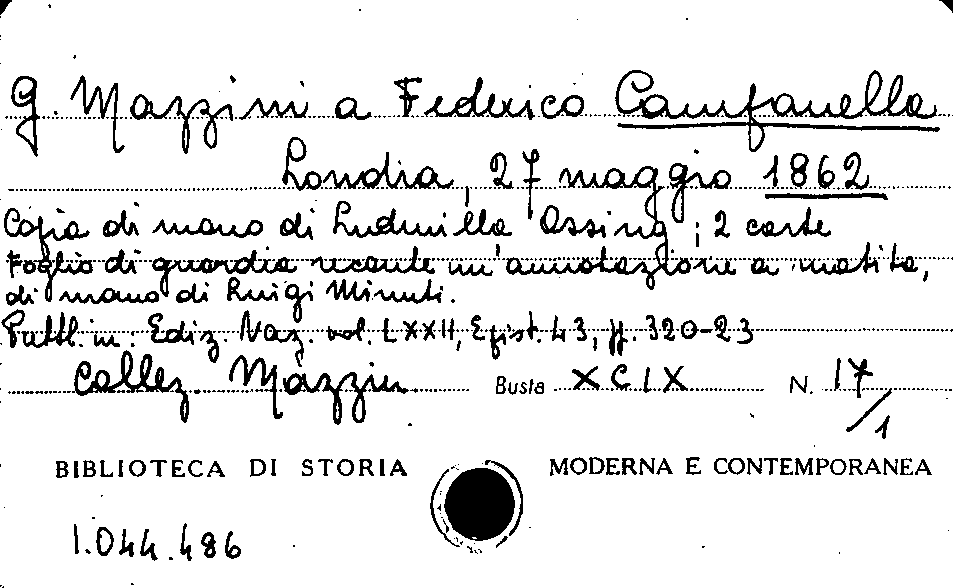 G. Mazzini a Federico Campanella
Londra, 27 maggio 1862
Copia di mano di Ludmilla Assing; 2 carte
Foglio di guardia recante un'annotazione a matita,
di mano di Luigi Minuti.
Pubbl. in: Ediz. Naz. vol. LXXII, Epist. 43, pp. 320-23
Collez. Mazzini Busta XCIX N. 17/1
BIBLIOTECA DI STORIA MODERNA E CONTEMPORANEA
1.044.486